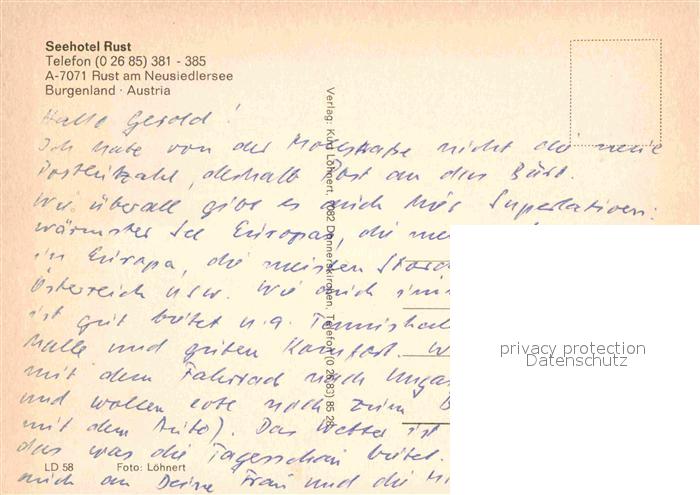 Seehotel Rust
Telefon (0 26 85) 381 - 385
A-7071 Rust am Neusiedlersee
Burgenland · Austria
Hallo Gerold!
Ich habe von der nicht die neue
Postleitzahl, deshalb Post an das Büro.
Wie überall gibt es auch hier Superlativen:
wärmster See Europas, die
in Europa, die meisten
Österreich usw. Wie auch
ist gut bietet u.a.
Halle und guten Komfort.
mit dem Fahrrad nach
und wollen evt. noch zum
mit dem Auto). Das Wetter ist
das was die Tagesschau bietet.
auch an Deine Frau und die
Verlag: Kurt Löhnert, 7082 Donnerskirchen, Telefon (0 26 83) 85 28
privacy protection
Datenschutz
LD 58 Foto: Löhnert